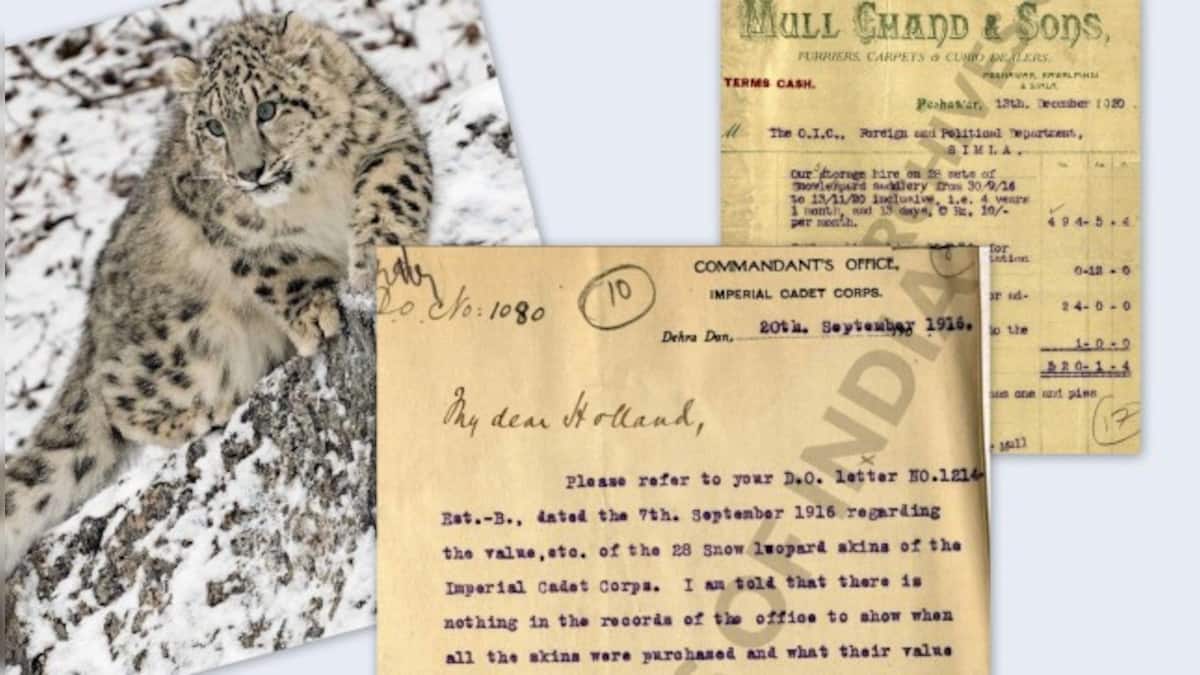 MULL CHAND & SONS,
FURRIERS, CARPETS & CURIO DEALERS.
PESHAWAR, RAWALPINDI
& SIMLA.
TERMS CASH.
Peshawar, 13th. December 1920
M
The O.I.C., Foreign and Political Department,
SIMLA.
Our storage hire on 28 sets of
Snowleopard saddlery from 30/9/16
to 13/11/20 inclusive, i.e. 4 years
1 month, and 13 days, @ Rs. 10/-
per month. 494-5-4
for
0-12-0
24-0-0
to the
1-0-0
520-1-4
one and pies
17
Mull
D.O. No: 1080
10
COMMANDANT'S OFFICE,
IMPERIAL CADET CORPS.
Dehra Dun, 20th. September 1916.
My dear Holland,
Please refer to your D.O. letter NO.1214-
Est.-B., dated the 7th. September 1916 regarding
the value,etc. of the 28 Snow leopard skins of the
Imperial Cadet Corps. I am told that there is
nothing in the records of the office to show when
all the skins were purchased and what their value
ARCHIVES
OF INDIA